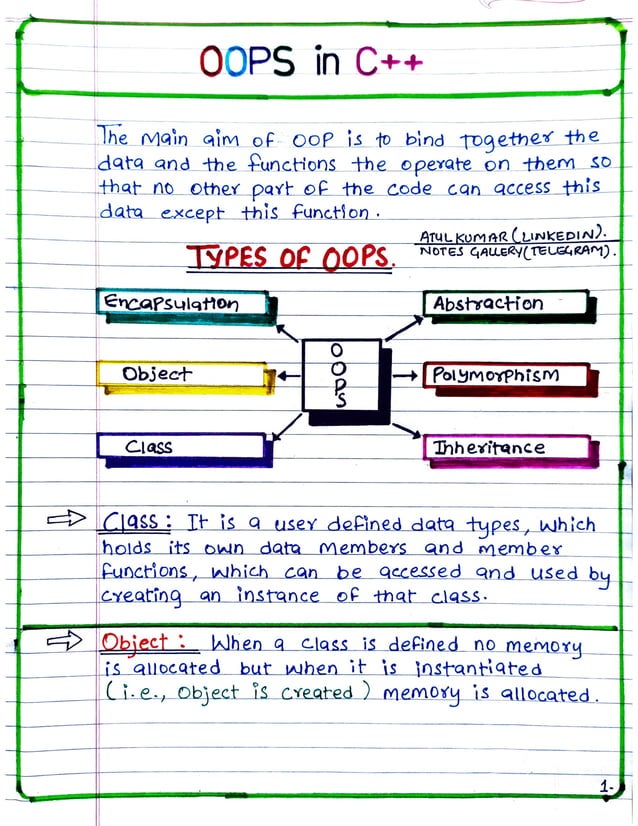 OOPS in C++
The Main aim of OOP is to bind together the
data and the functions the operate on them so
that no other part of the code can access this
data except this function.
ATUL KUMAR (LINKEDIN).
NOTES GALLERY (TELEGRAM).
TYPES OF OOPS.
Encapsulation
Abstraction
OOPS
Object
Polymorphism
Class
Inheritance
⇨ Class: It is a user defined data types, which
holds its own data members and member
functions, which can be accessed and used by
creating an instance of that class.
⇨ Object: When a class is defined no memory
is allocated but when it is instantiated
(i.e., Object is created) memory is allocated.
1-